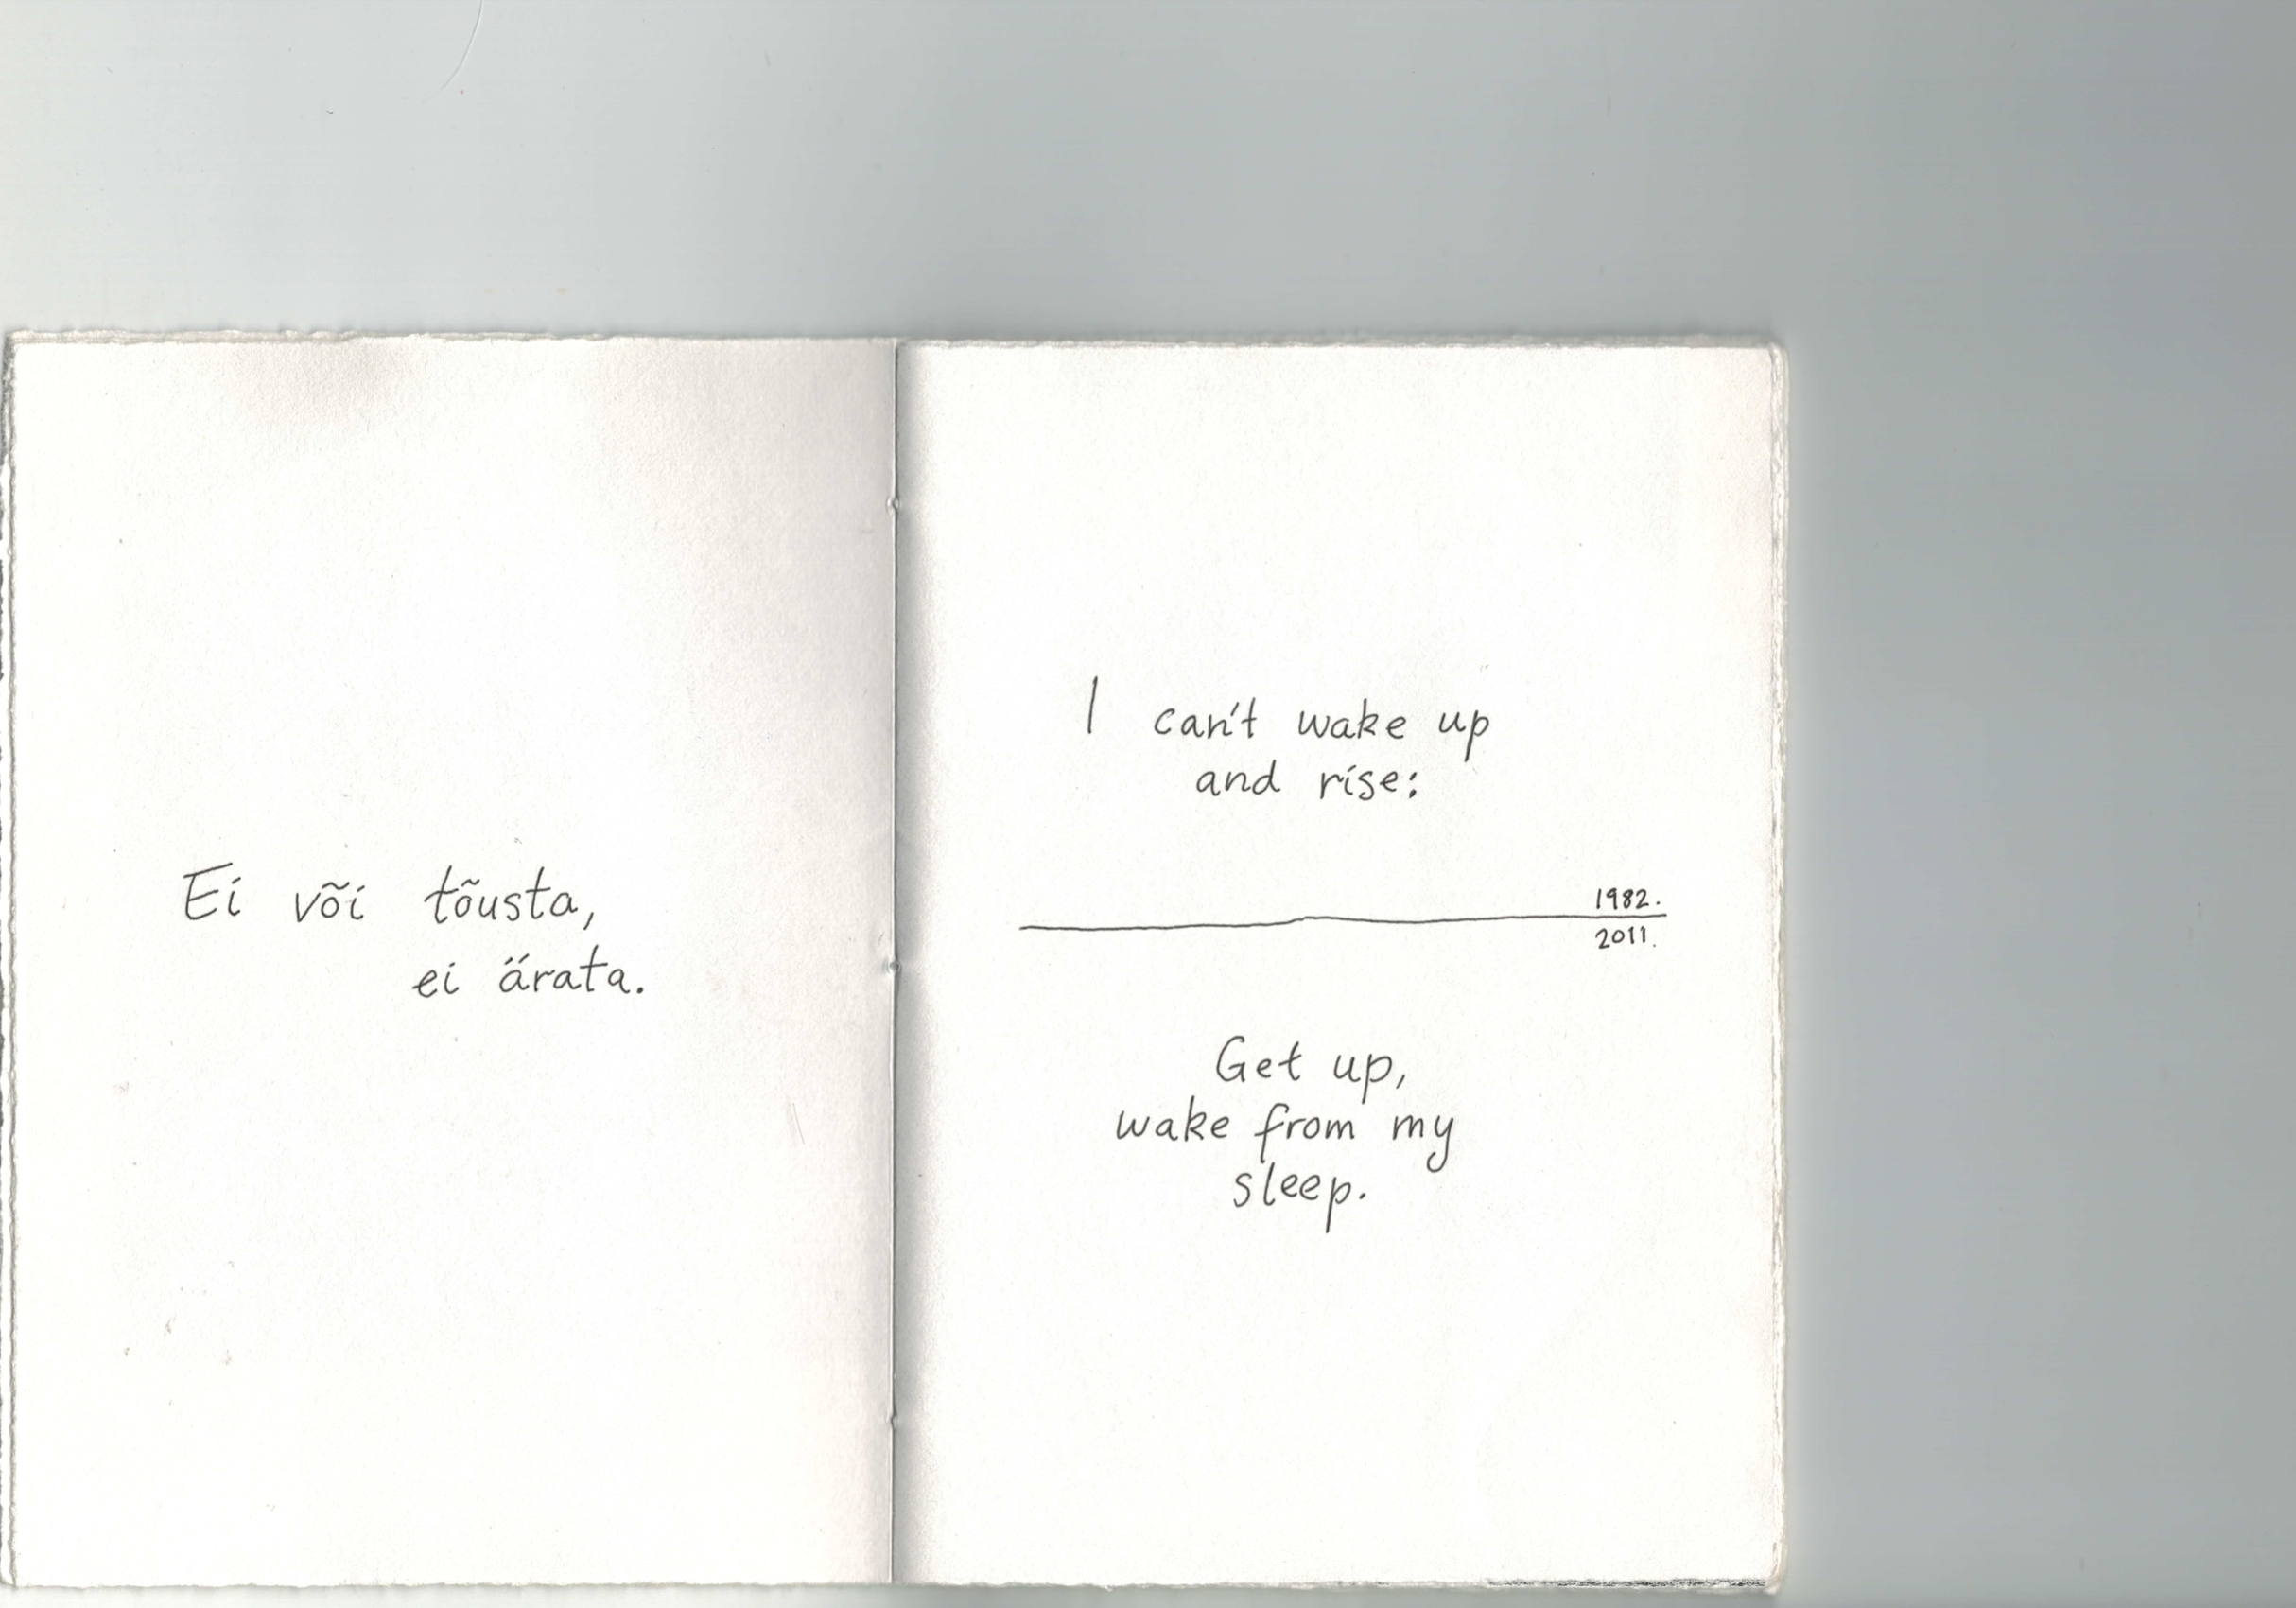 Ei või tõusta,
ei ärata.
I can't wake up
and rise:
1982.
2011.
Get up,
wake from my
sleep.